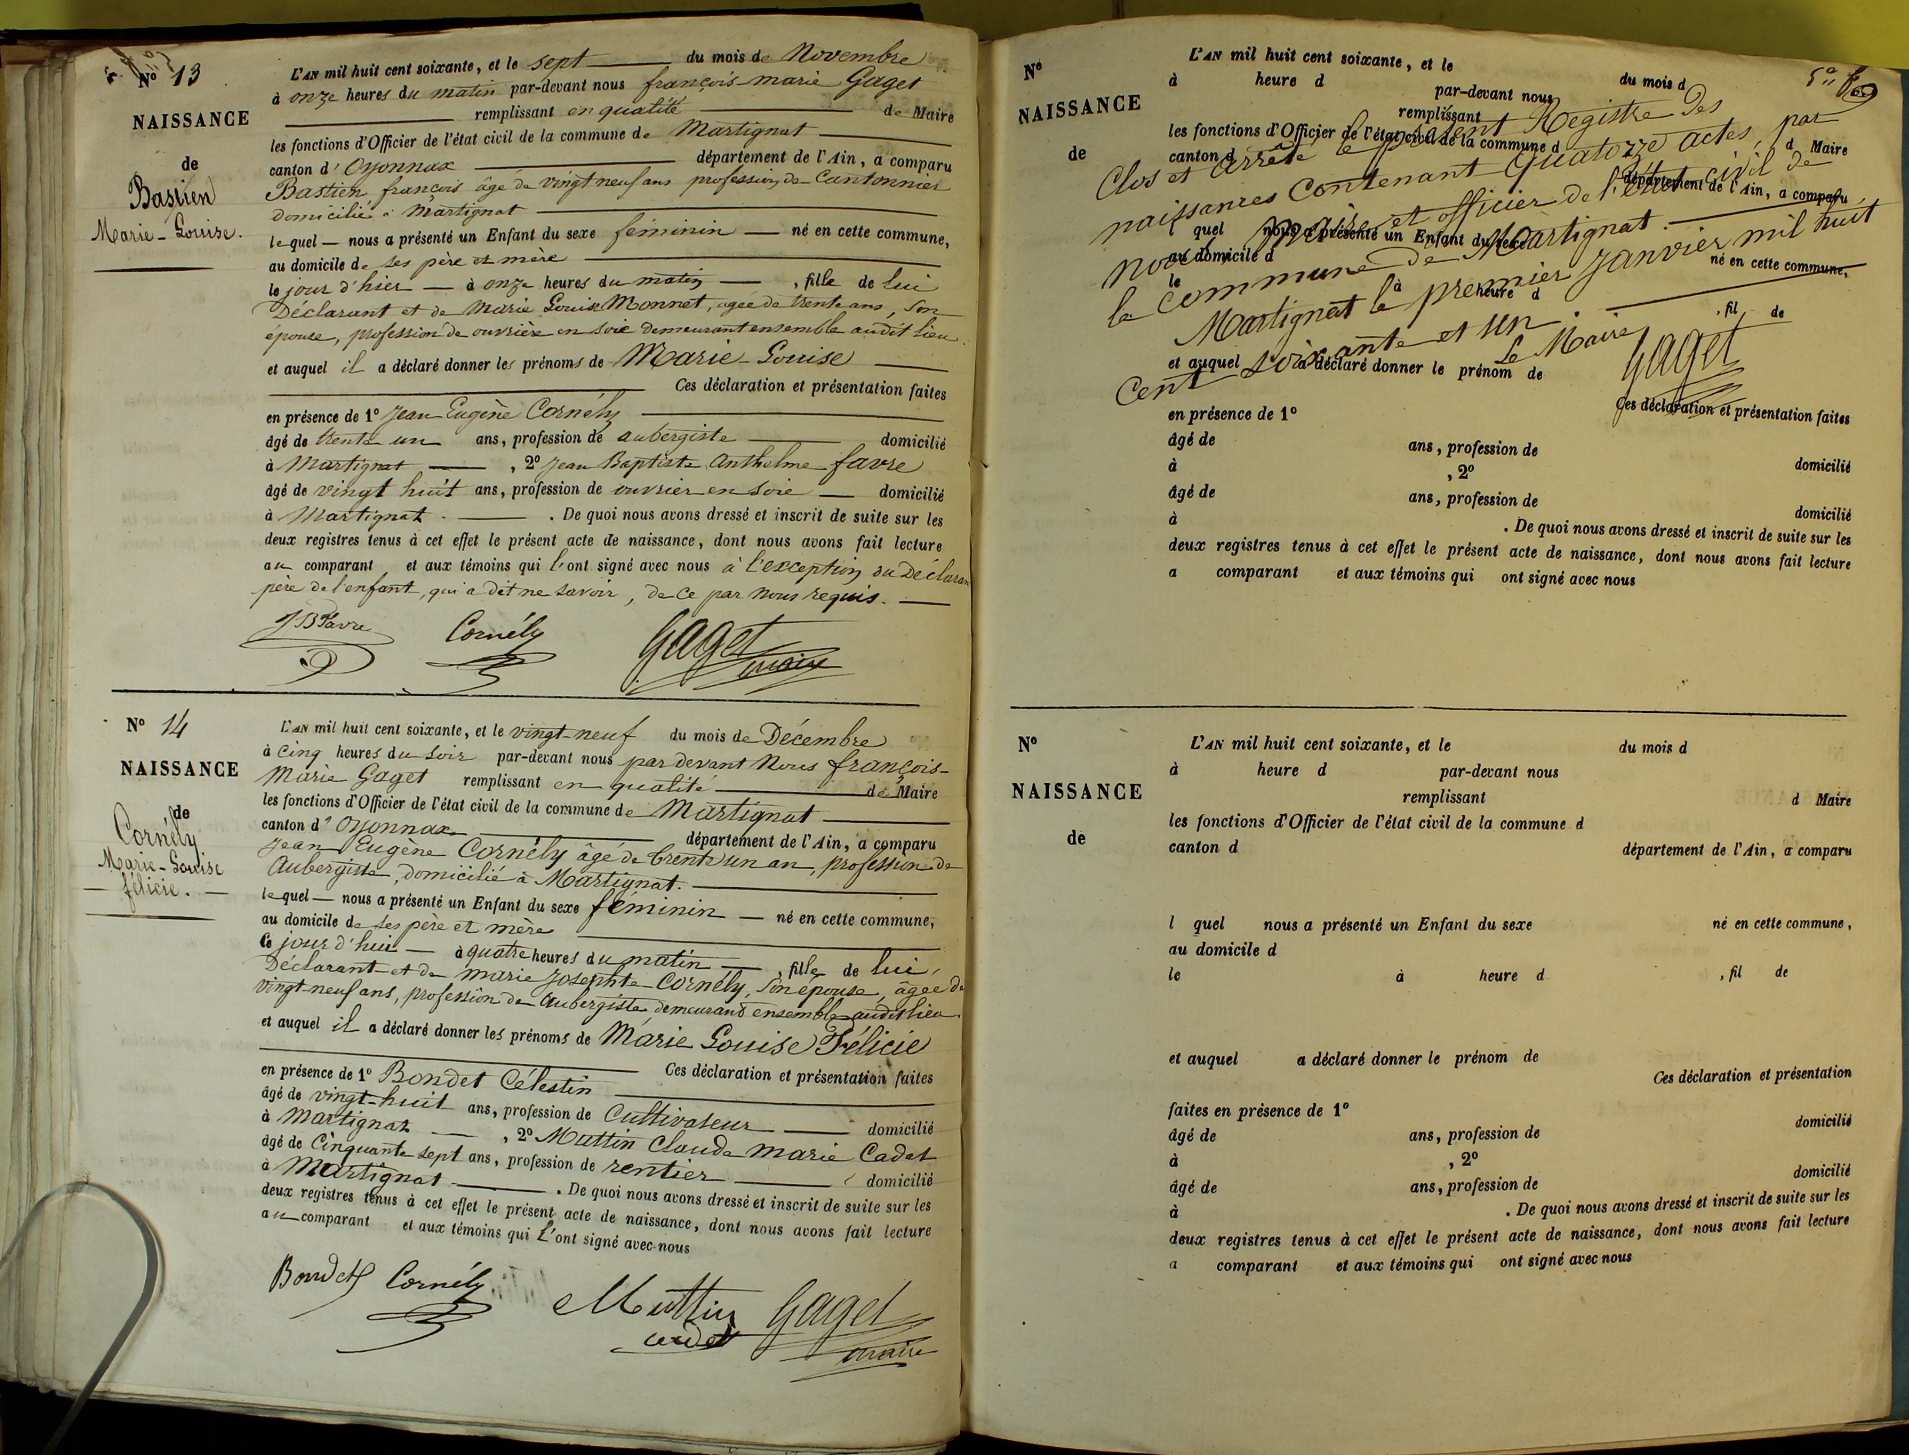 N° 13
NAISSANCE
de
Bastien
Marie-Louise.
L'AN mil huit cent soixante, et le sept du mois de Novembre
à onze heures du matin par-devant nous françois marie Gaget
remplissant en qualité de Maire
les fonctions d'Officier de l'état civil de la commune de Martignat
canton d'Oyonnax département de l'Ain, a comparu
Bastien françois âgé de vingt neuf ans profession de Cantonnier
domicilié à Martignat
lequel nous a présenté un Enfant du sexe féminin né en cette commune,
au domicile de ses père et mère
le jour d'hier à onze heures du matin, fille de lui
Déclarant et de Marie Louise Monnet, agée de trente ans, son
épouse, profession de ouvrière en soie demeurant ensemble audit lieu.
et auquel il a déclaré donner les prénoms de Marie-Louise
Ces déclaration et présentation faites
en présence de 1° Jean Eugène Cornély
âgé de trente un ans, profession de aubergiste domicilié
à Martignat, 2° Jean Baptiste Anthelme favre
âgé de vingt huit ans, profession de ouvrier en soie domicilié
à Martignat. De quoi nous avons dressé et inscrit de suite sur les
deux registres tenus à cet effet le présent acte de naissance, dont nous avons fait lecture
au comparant et aux témoins qui l'ont signé avec nous à l'exception du Déclarant
père de l'enfant, qui a dit ne savoir, de ce par nous requis.
JB Favre Cornély Gaget
maire
N° 14
NAISSANCE
de
Cornély
Marie-Louise
félicie.
L'AN mil huit cent soixante, et le vingt-neuf du mois de Décembre
à cinq heures du soir par-devant nous par devant Nous françois-
Marie Gaget remplissant en qualité de Maire
les fonctions d'Officier de l'état civil de la commune de Martignat
canton d'Oyonnax département de l'Ain, a comparu
Jean Eugène Cornély âgé de trente un an, profession de
Aubergiste, domicilié à Martignat.
lequel nous a présenté un Enfant du sexe féminin né en cette commune,
au domicile de ses père et mère
Ce jour d'hui à quatre heures du matin, fille de lui,
Déclarant et de marie Josephte Cornély, son épouse, âgée de
vingt-neuf ans, profession de Aubergiste, demeurant ensemble audit lieu.
et auquel il a déclaré donner les prénoms de Marie Louise Félicie
Ces déclaration et présentation faites
en présence de 1° Bondet Célestin
âgé de vingt-huit ans, profession de Cultivateur domicilié
à Martignat, 2° Muttin Claude marie Cadet
âgé de Cinquante sept ans, profession de rentier domicilié
à Martignat. De quoi nous avons dressé et inscrit de suite sur les
deux registres tenus à cet effet le présent acte de naissance, dont nous avons fait lecture
au comparant et aux témoins qui L'ont signé avec nous
Bondet Cornély Muttin Gaget
cadet maire
N°
NAISSANCE
de
L'AN mil huit cent soixante, et le du mois d
à heure d par-devant nous
remplissant d Maire
les fonctions d'Officier de l'état civil de la commune d
canton d département de l'Ain, a comparu
l quel nous a présenté un Enfant du sexe né en cette commune,
au domicile d
le à heure d, fil de
et auquel a déclaré donner le prénom de
Ces déclaration et présentation faites
en présence de 1°
âgé de ans, profession de domicilié
à, 2°
âgé de ans, profession de domicilié
à. De quoi nous avons dressé et inscrit de suite sur les
deux registres tenus à cet effet le présent acte de naissance, dont nous avons fait lecture
a comparant et aux témoins qui ont signé avec nous
Clos et arrêté le présent Registre des
naissances contenant quatorze actes, par
nous, maire et officier de l'état civil de
la commune de Martignat.
Martignat le premier Janvier mil huit
cent soixante et un.
Le Maire
Gaget
N°
NAISSANCE
de
L'AN mil huit cent soixante, et le du mois d
à heure d par-devant nous
remplissant d Maire
les fonctions d'Officier de l'état civil de la commune d
canton d département de l'Ain, a comparu
l quel nous a présenté un Enfant du sexe né en cette commune,
au domicile d
le à heure d, fil de
et auquel a déclaré donner le prénom de
Ces déclaration et présentation
faites en présence de 1°
âgé de ans, profession de domicilié
à, 2°
âgé de ans, profession de domicilié
à. De quoi nous avons dressé et inscrit de suite sur les
deux registres tenus à cet effet le présent acte de naissance, dont nous avons fait lecture
a comparant et aux témoins qui ont signé avec nous